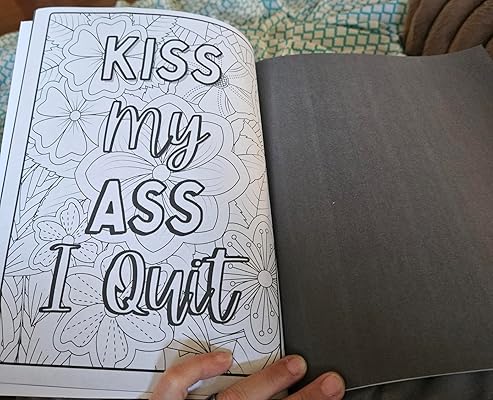 KISS
My
ASS
I Quit